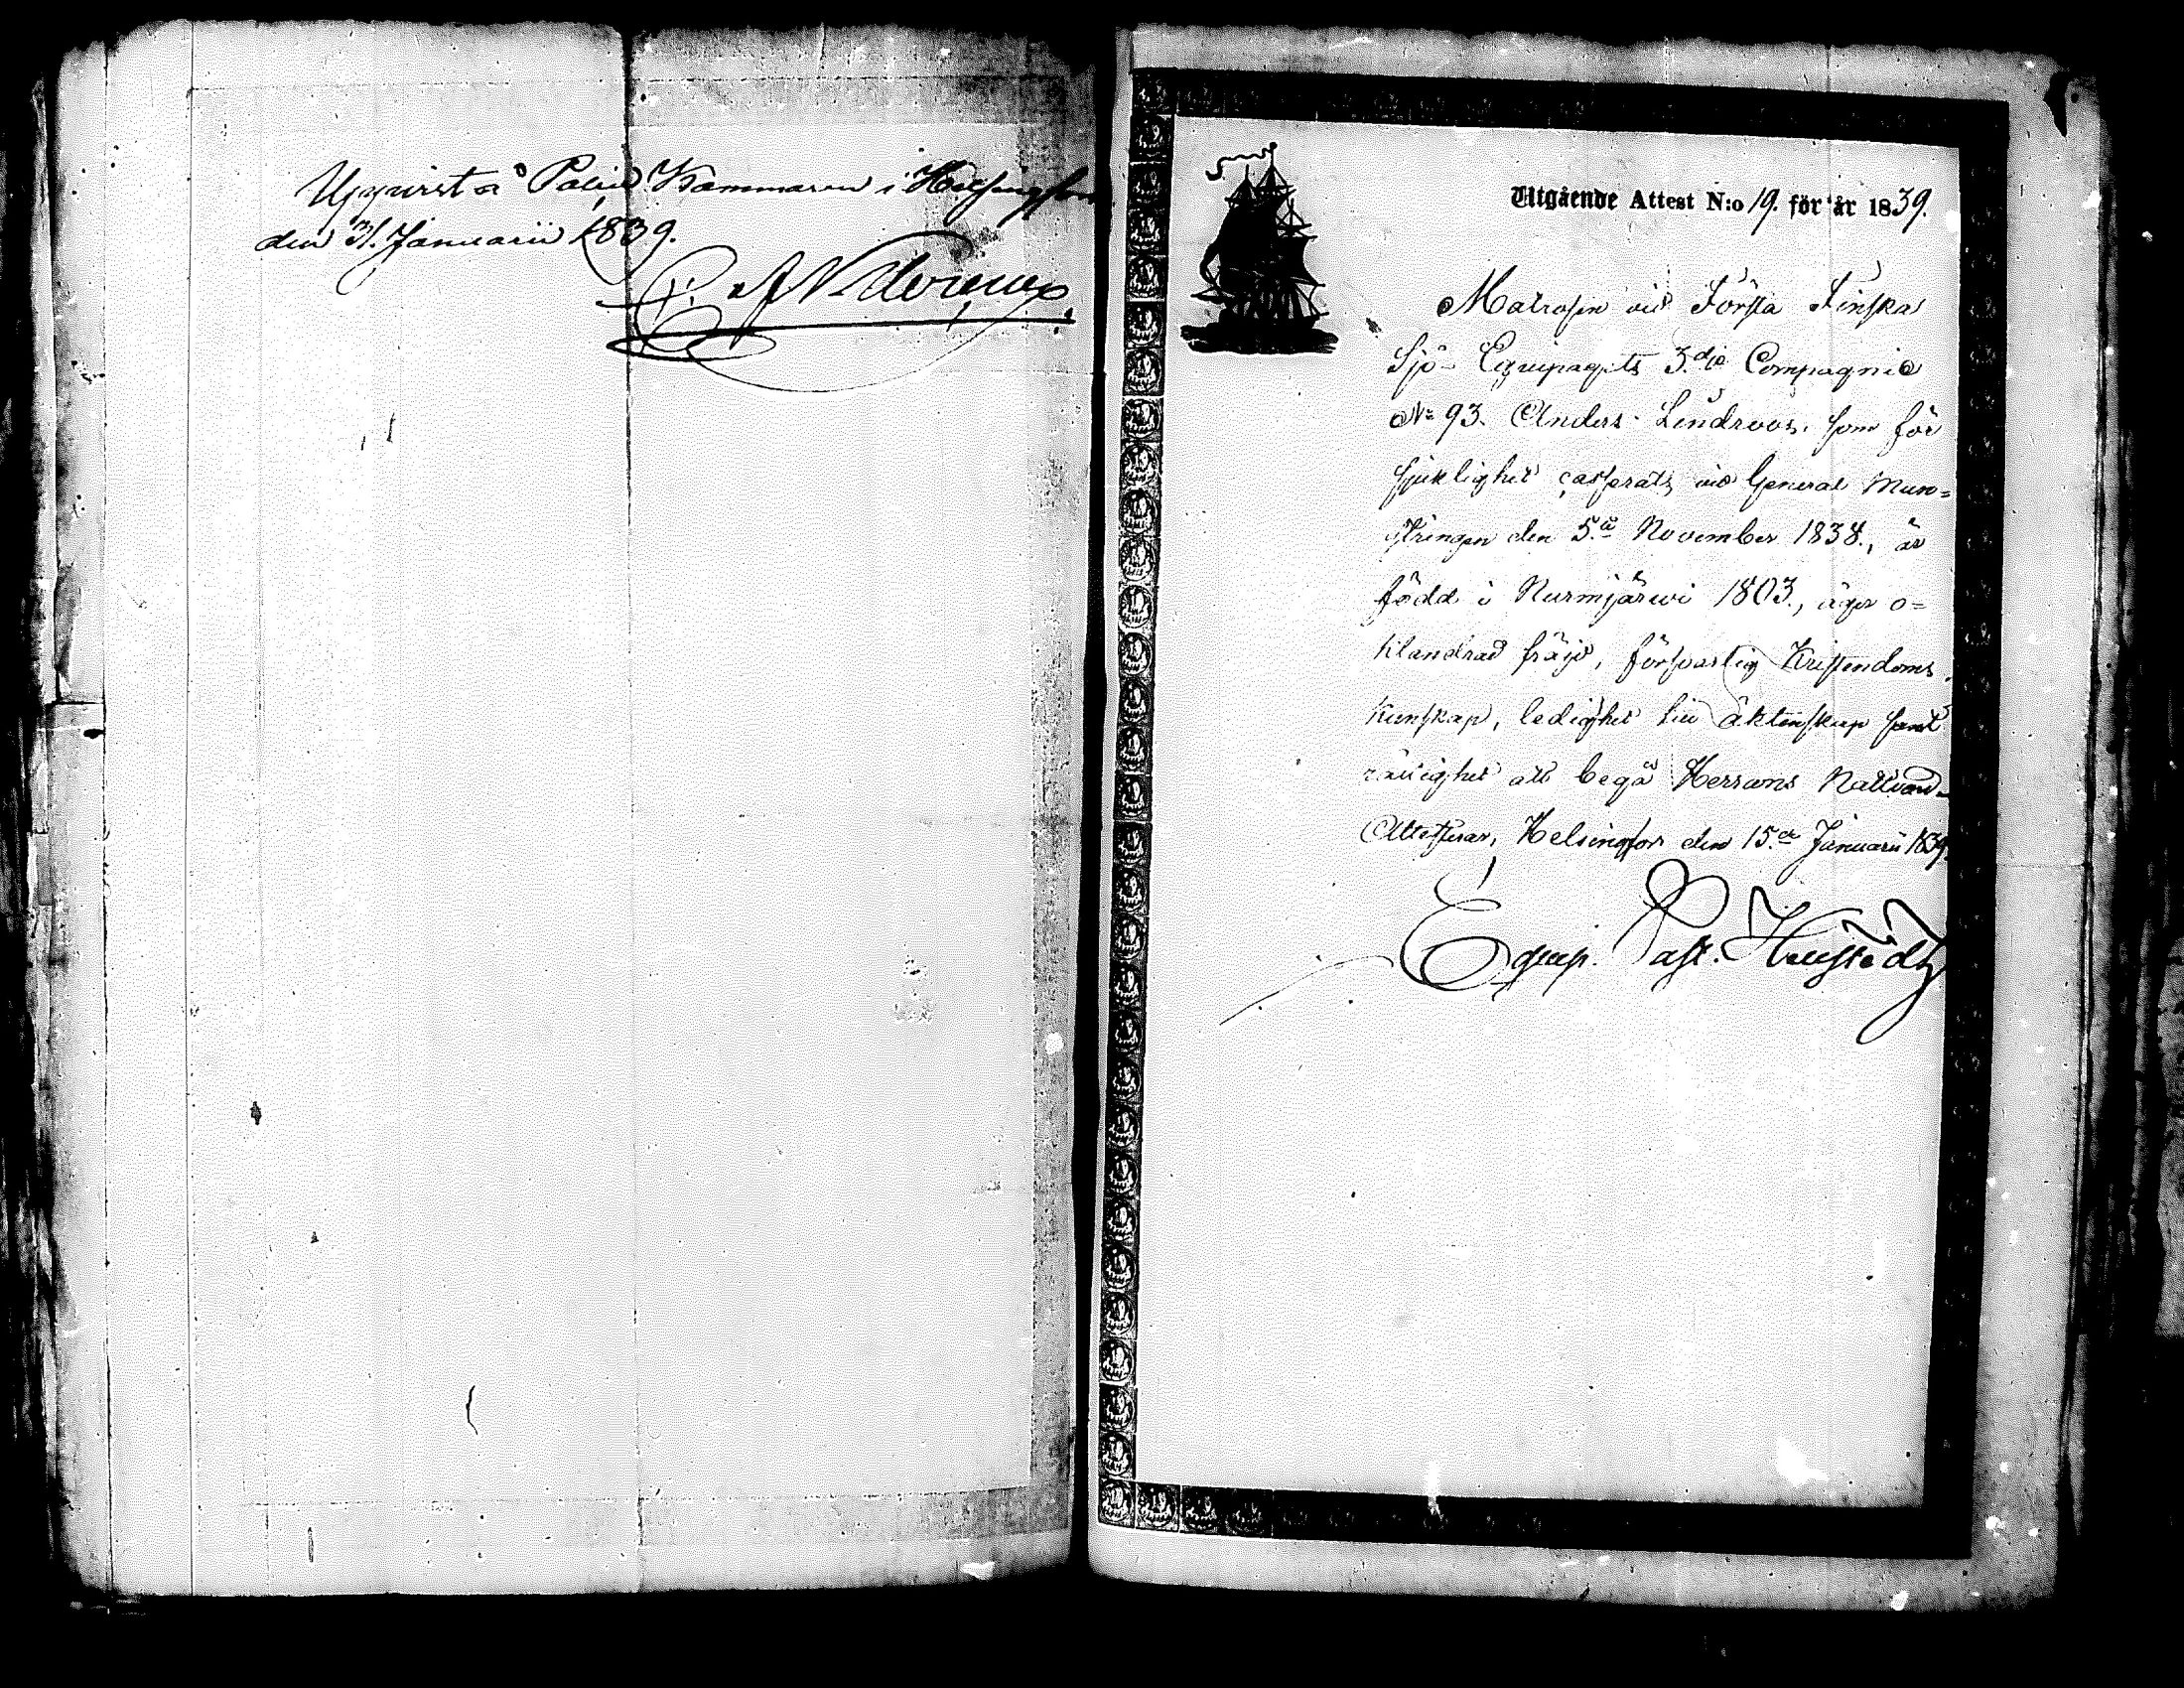 Uppvist å Polis Kammaren i Helsingfors
den 31. Januarii 1839.
Utgående Attest N:o 19. för år 1839.
Matrosen vid Första Finska
Sjö-Equipagets 3.dje Compagnie
No 93. Anders Lindroos, som för
sjuklighet casserats vid General Mun=
stringen den 5.te November 1838., är
född i Nurmijärwi 1803., äger o=
klandrad fräjd, försvarlig Kristendoms
kunskap, ledighet till äktenskap samt
rättighet att begå Herrans Nattvard
Attesterar, Helsingfors den 15.de Januarii 1839.
Equip. Past.